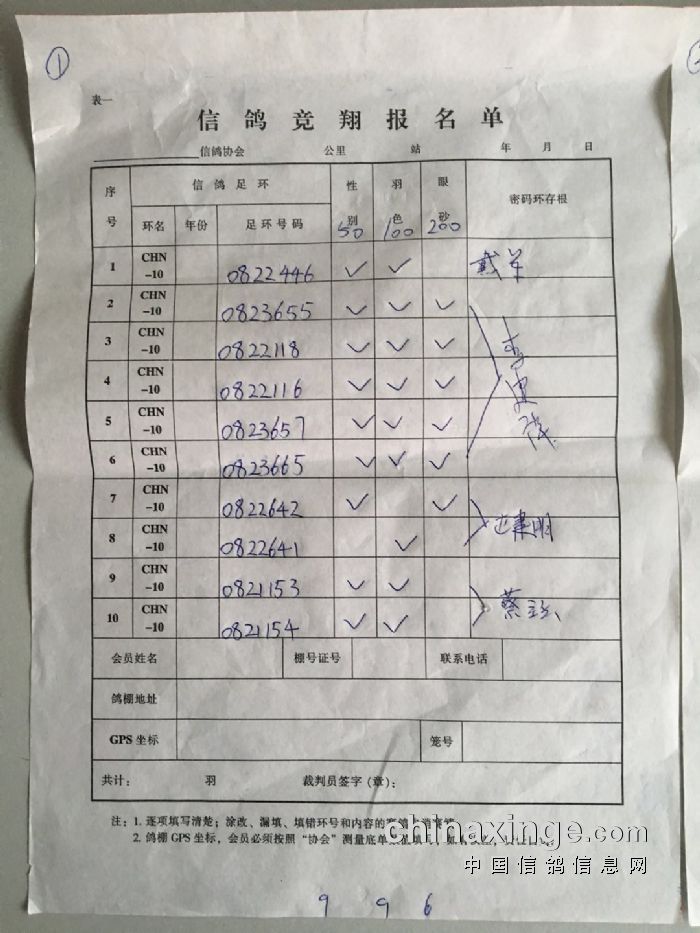 ①
表一
信鸽竞翔报名单
信鸽协会 公里 站 年 月 日
序号 信鸽足环 性别 羽色 眼砂 密码环存根
环名 年份 足环号码 50 100 200
1 CHN-10 0822446 ✓ ✓ 戴军
2 CHN-10 0823655 ✓ ✓ ✓
3 CHN-10 0822118 ✓ ✓ ✓
4 CHN-10 0822116 ✓ ✓ ✓
5 CHN-10 0823657 ✓ ✓ ✓
6 CHN-10 0823665 ✓ ✓ ✓
7 CHN-10 0822642 ✓ ✓
8 CHN-10 0822641 ✓ 建明
9 CHN-10 0821153 ✓ ✓
10 CHN-10 0821154 ✓ ✓ 蔡
会员姓名 棚号证号 联系电话
鸽棚地址
GPS 坐标 笼号
共计： 羽 裁判员签字（章）：
注：1. 逐项填写清楚；涂改、漏填、填错环号和内容的
2. 鸽棚 GPS 坐标，会员必须按照“协会”测量底单
chinaxinge.com
中国信鸽信息网
9 9 6